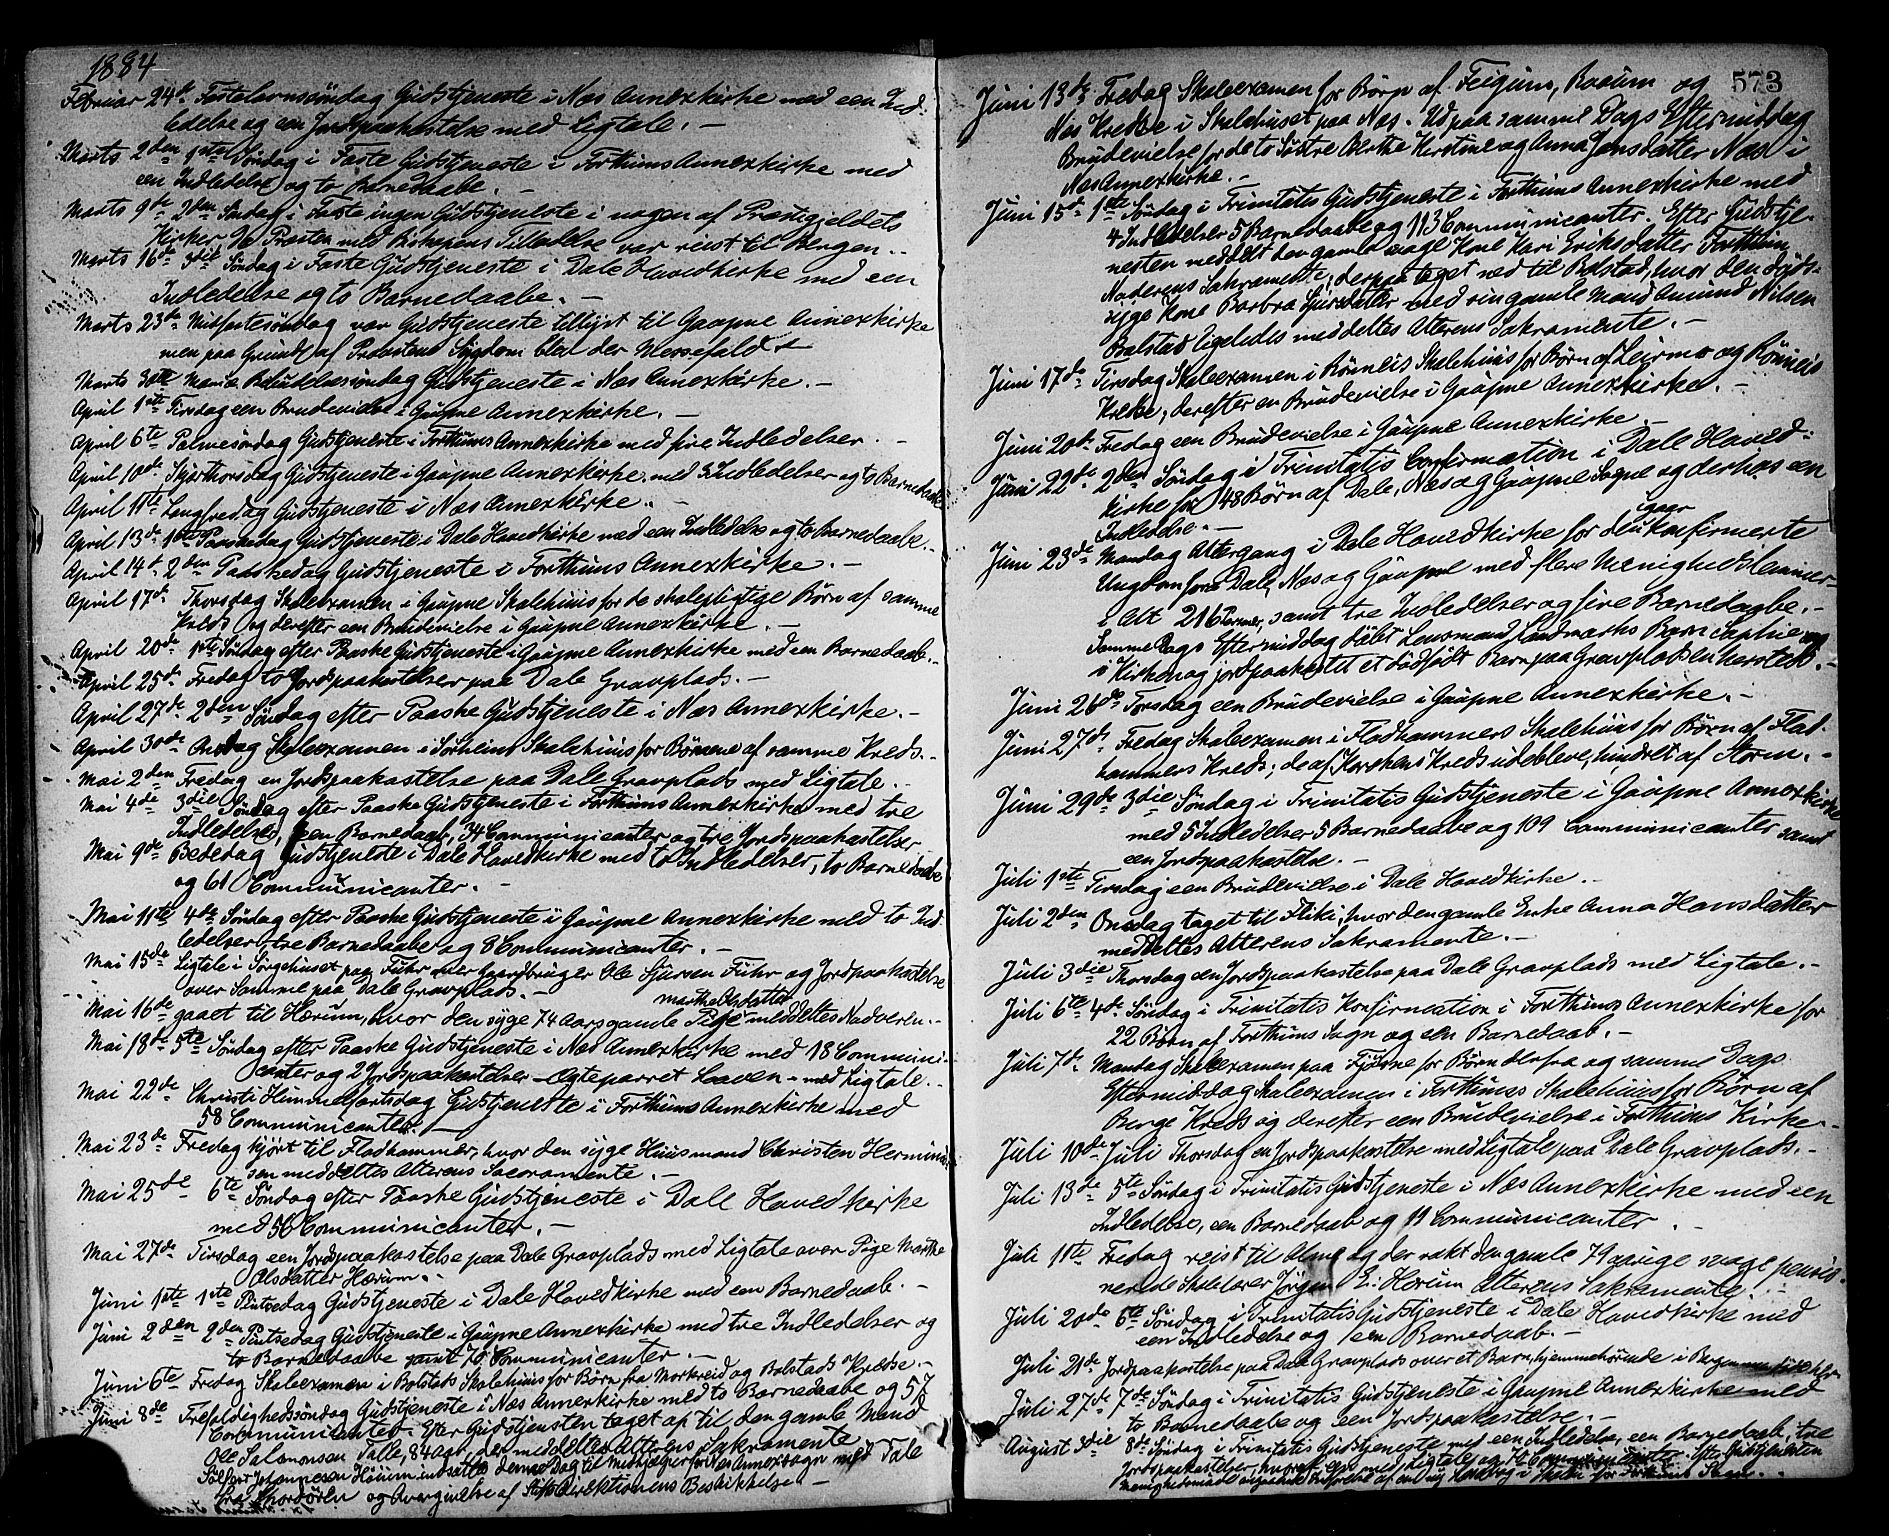 1884
Februar 24de Fastelavnssöndag Gudstjeneste i Næs Annexkirke med een Ind-
ledelse og een Jordpaakastelse med Ligtale. -
Marts 2den 1ste Söndag i Faste Gudstjeneste i Forthuns Annexkirke med
een Indledelse og to Barnedaabe. -
Marts 9de 2den Söndag i Faste ingen Gudstjeneste i nogen af Præstegjeldets
Kirker Da Præsten med Biskopens Tilladelse var reist til Bergen. -
Marts 16de 3die Söndag i Faste Gudstjeneste i Dale Hovedkirke med een
Indledelse og to Barnedaabe. -
Marts 23de Midfastesöndag var Gudstjeneste tillyst til Gaupne Annexkirke
men paa Grund af Provstens Sygdom blev der Messefald
Marts 30te Mariæ Bebudelsessöndag Gudstjeneste i Næs Annexkirke. -
April 1ste Tirsdag een Brudevielse i Gaupne Annexkirke. -
April 6te Palmesöndag Gudstjeneste i Forthuns Annexkirke med fire Indledelser. -
April 10de Skjærthorsdag Gudstjeneste i Gaupne Annexkirke med 3 Indledelser og to Barnedaabe
April 11te Langfredag Gudstjeneste i Næs Annexkirke. -
April 13de 1ste Paaskedag Gudstjeneste i Dale Hovedkirke med een Indledelse og to Barnedaabe. -
April 14de 2den Paaskedag Gudstjeneste i Forthuns Annexkirke. -
April 17de Thorsdag Skoleexamen i Gaupne Skolehuus for de skolepligtige Börn af samme
Kreds og derefter een Brudevielse i Gaupne Annexkirke. -
April 20de 1ste Söndag efter Paaske Gudstjeneste i Gaupne Annexkirke med een Barnedaab. -
April 25de Fredag to Jordpaakastelser paa Dale Gravplads. -
April 27de 2den Söndag efter Paaske Gudstjeneste i Næs Annexkirke. -
April 30de Onsdag Skoleexamen i Sörheims Skolehuus for Börnene af samme Kreds. -
Mai 2den Fredag en Jordpaakastelse paa Dale Gravplads med Ligtale. -
Mai 4de 3die Söndag efter Paaske Gudstjeneste i Forthuns Annexkirke med tre
Indledelser, een Barnedaab, 34 Communicanter og tre Jordpaakastelser
Mai 9de Bededag Gudstjeneste i Dale Hovedkirke med to Indledelser, to Barnedaabe
og 61 Communicanter. -
Mai 11te 4de Söndag efter Paaske Gudstjeneste i Gaupne Annexkirke med to Ind-
ledelser, tre Barnedaabe og 8 Communicanter. -
Mai 15de Ligtale i Sörgehuset paa Fuhr over Gaardbruger Ole Sjursen Fuhr og Jordpaakastelse
over Samme paa Dale Gravplads. -
Marthe Olsdatter
Mai 16de gaaet til Hærum, hvor den syge 74 Aars gamle Pige meddeltes Nadveren. -
Mai 18de 5te Söndag efter Paaske Gudstjeneste i Næs Annexkirke med 18 Communi-
canter og 2 Jordpaakastelser - Ægteparret Laaven - med Ligtale. -
Mai 22de Christi Himmelfartsdag Gudstjeneste i Forthuns Annexkirke med
58 Communicanter. -
Mai 23de Fredag kjört til Flodhammer, hvor den syge Huusmand Christen Hermund-
sen meddeltes Alterens Sacramente. -
Mai 25de 6te Söndag efter Paaske Gudstjeneste i Dale Hovedkirke
med 56 Communicanter. -
Mai 27de Tirsdag een Jordpaakastelse paa Dale Gravplads med Ligtale over Pige Marthe
Olsdatter Hærum. -
Juni 1ste 1ste Pintsedag Gudstjeneste i Dale Hovedkirke med een Barnedaab. -
Juni 2den 2den Pintsedag Gudstjeneste i Gaupne Annexkirke med tre Indledelser og
to Barnedaabe samt 75 Communicanter. -
Juni 6te Fredag Skoleexamen i Bolstads Skolehuus for Börn fra Morkreid og Bolstads Kredse. -
Juni 8de Trefoldighedssöndag Gudstjeneste i Næs Annexkirke med to Barnedaabe og 57
Communicanter. Efter Gudstjenesten taget op til den gamle Mand
Ole Salomonsen Talle, 84 Aar, der meddeltes Alterens Sakramente
Sølfest Johannesen Höium indsattes denne Dag til Medhjelper for Næs Annexsogn med Tale
fra Chordören og Overgivelse af Stiftsdirektionens Beskikkelse -
573
Juni 13de Fredag Skoleexamen for Börn af Feigum, Raaum og
Næs Kredse i Skolehuset paa Næs. Udpaa samme Dags Eftermiddag
Brudevielse for de to Söstre Berthe Kirstine og Anna Jonsdatter Næs i
Næs Annexkirke. -
Juni 15de 1ste Söndag i Trinitatis Gudstjeneste i Forthuns Annexkirke med
4 Indledelser 5 Barnedaabe og 113 Communicanter. Efter Gudstje-
nesten meddelt den gamle svage Kone Kari Eriksdatter Forthun
Naderens Sakramente; derpaa taget ned til Bolstad, hvor den döds-
syge Kone Barbra Sjursdatter med sin gamle Mand Amund Nilsen
Bolstad ligeledes meddeltes Alterens Sakramente. -
Juni 17de Tirsdag Skoleexamen i Rönneis Skolehuus for Börn af Leirmo og Rönneis
Kredse, derefter een Brudevielse i Gaupne Annexkirke. -
Juni 20de Fredag een Brudevielse i Gaupne Annexkirke -
Juni 22de 2den Söndag i Trinitatis Confirmation i Dale Hoved-
kirke for 48 Börn af Dale, Næs og Gaupne Sogne og derhos een
Indledelse. -
igaar
Juni 23de Mandag Altergang i Dale Hovedkirke for den konfirmerte
Ungdom fra Dale, Næs og Gaupne med flere Menighedslemmer -
i Alt 216 Personer, samt tre Indledelser og fire Barnedaabe. -
Samme Dags Eftermiddag döbt Lensmand Landmarks Barn Sophie
i Kirken og jordpaakastet et dödfödt Barn paa Gravpladsen
Juni 26de Torsdag een Brudevielse i Gaupne Annexkirke. -
Juni 27de Fredag Skoleexamen i Flodhammers Skolehuus for Börn af Flod-
hammers Kreds; de af Kreds udebleve, hindret af Storm. -
Juni 29de 3die Söndag i Trinitatis Gudstjeneste i Gaupne Annexkirke
med 5 Indledelser 5 Barnedaabe og 109 Communicanter samt
een Jordpaakastelse. -
Juli 1ste Tirsdag een Brudevielse i Dale Hovedkirke. -
Juli 2den Onsdag taget til Fliki, hvor den gamle Enke Anna Hansdatter
meddeltes Alterens Sakramente. -
Juli 3die Thorsdag een Jordpaakastelse paa Dale Gravplads med Ligtale. -
Juli 6te 4de Söndag i Trinitatis Konfirmation i Forthuns Annexkirke for
22 Börn af Forthuns Sogn og een Barnedaab. -
Juli 7de Mandag Skoleexamen paa Fjörne for Börn derfra og samme Dags
Eftermiddag Skoleexamen i Forthuns Skolehuus for Börn af
Berge Kreds og derefter een Brudevielse i Forthuns Kirke. -
Juli 10de Juli Thorsdag en Jordpaakastelse med Ligtale paa Dale Gravplads. -
Juli 13de 5te Söndag i Trinitatis Gudstjeneste i Næs Annexkirke med een
Indledelse, een Barnedaab og 11 Communicanter. -
Juli 11te Fredag reist til Alme og der rakt den gamle 79 aarige svage pensio-
nerede Skolelærer Jörgen E. Herum Alterens Sakramente. -
Juli 20de 6te Söndag i Trinitatis Gudstjeneste i Dale Hovedkirke med
een Indledelse og een Barnedaab. -
Juli 21de Jordpaakastelse paa Dale Gravplads over et Barn, hjemmehörende i Bergen
Juli 27de 7de Söndag i Trinitatis Gudstjeneste i Gaupne Annexkirke med
to Barnedaabe og een Jordpaakastelse. -
August 3die 8de Söndag i Trinitatis Gudstjeneste med een Indledelse, een Barnedaab, tre
Jordpaakastelser, hvoraf een med Ligtale og Communicanter. Efter Gudstjenesten
Menighedsmöde angaaende